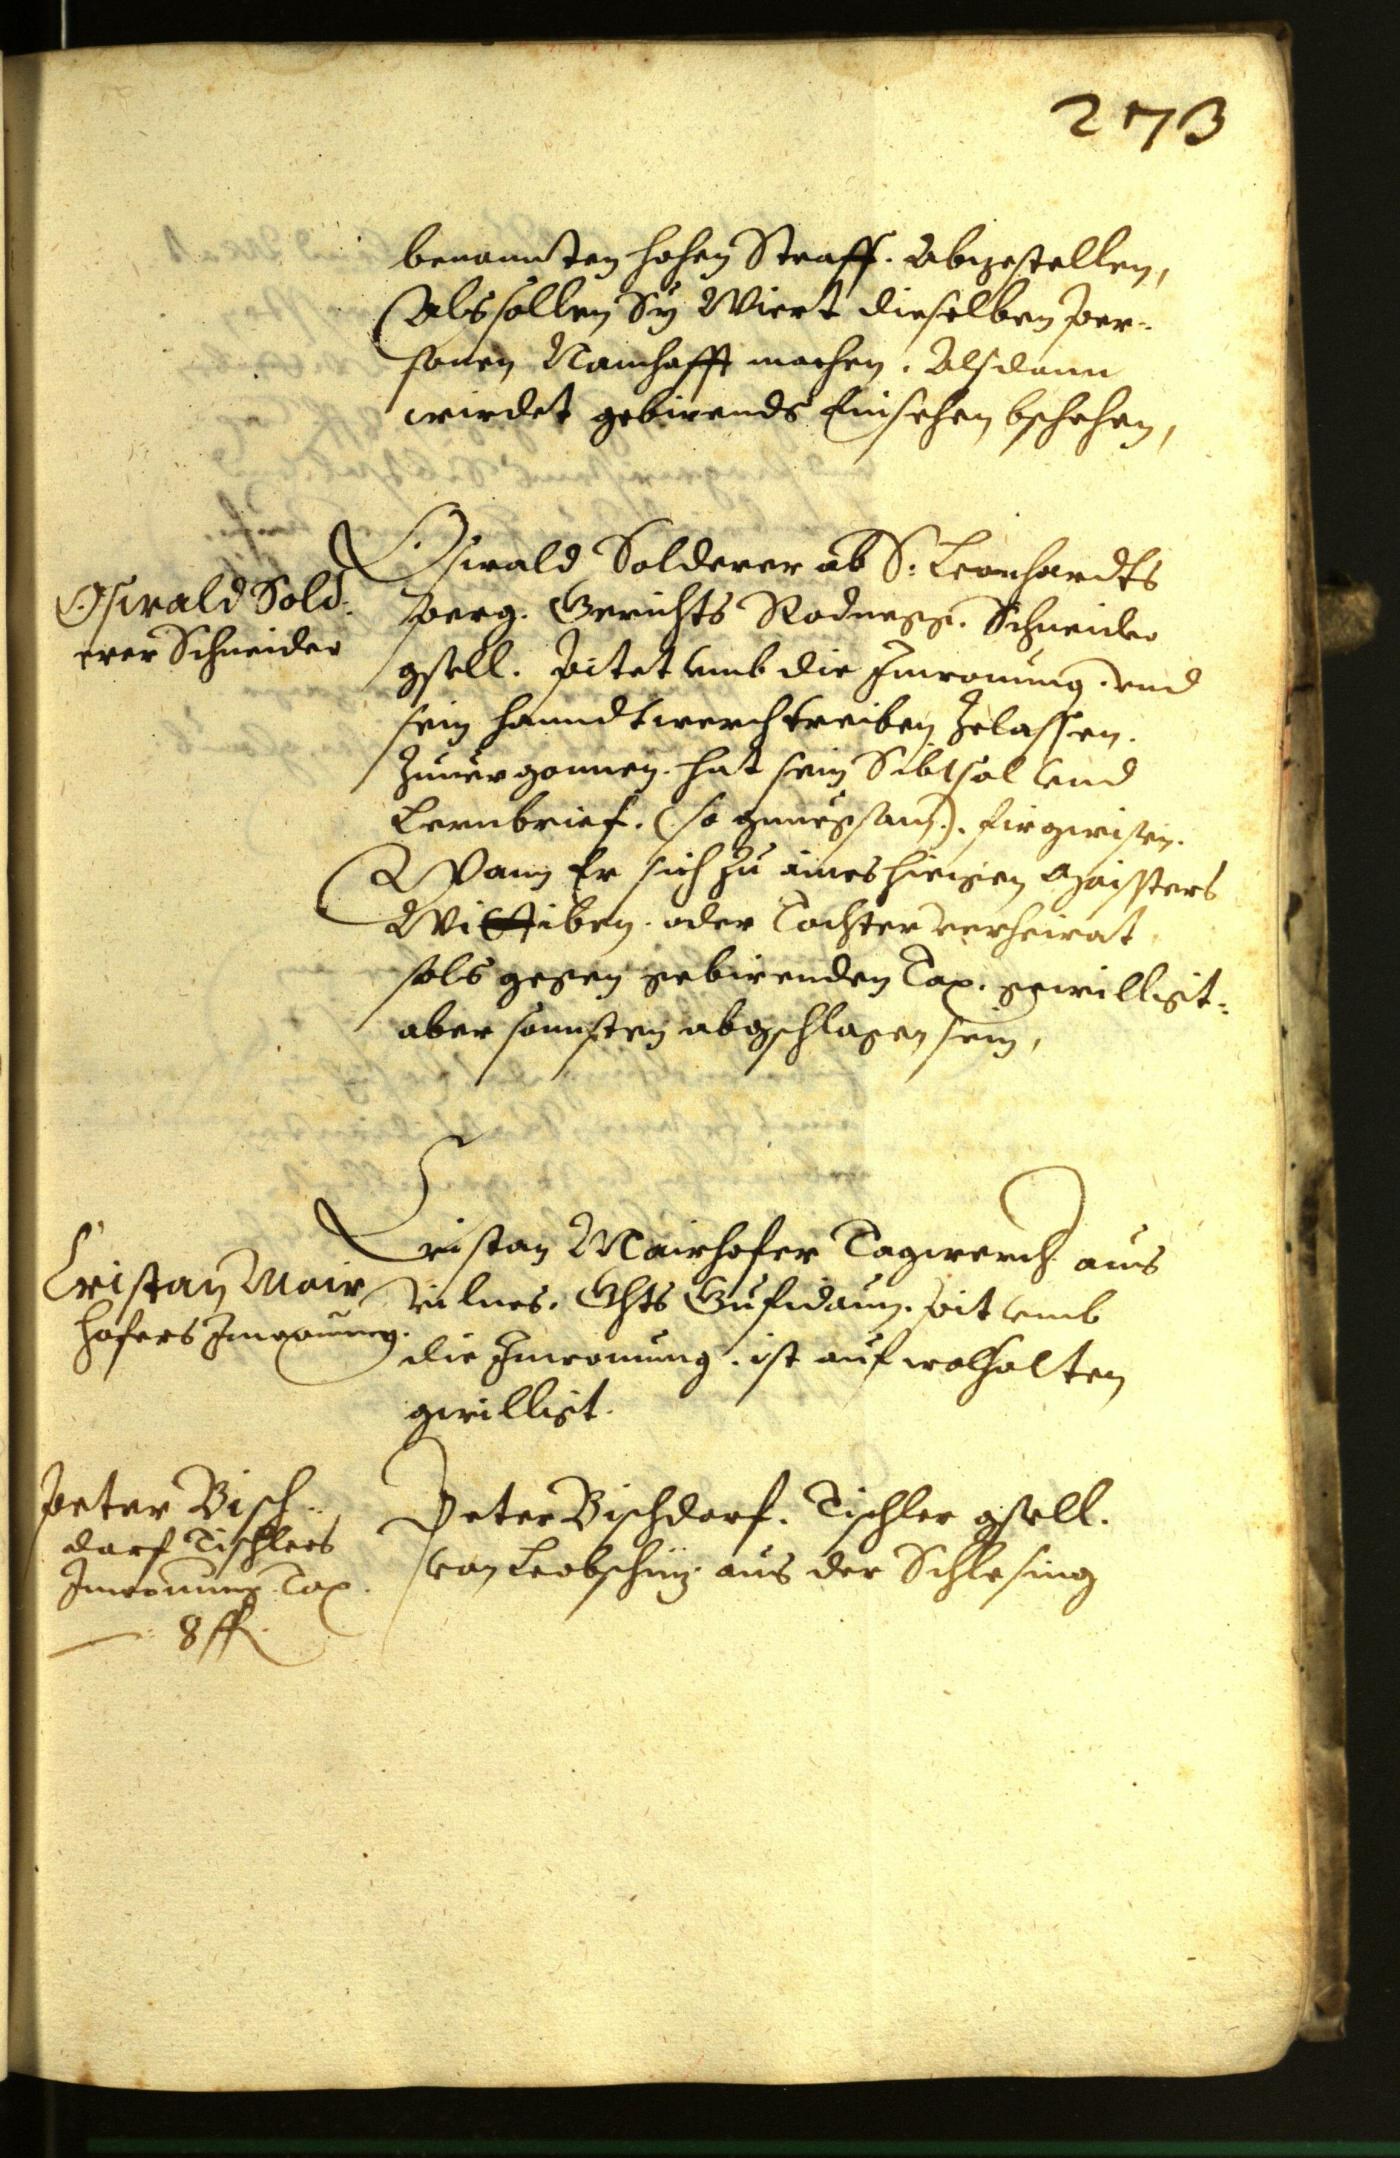 273
benannten hohen Straff. Abzestellen,
Als sollen Sy Wiert dieselben Per-
sonen Namhafft machen. Alsdann
wirdet gebirends Einsehen bschehen,
Oswald Sold-
erer Schneider
Oswald Solderer ab S: Leonhardts
perg. Gerichts Rodnegg. Schneider
gsell. Pitet umb die Inwonung. und
sein hanndtwerch treiben Zelassen.
Zuvergonnen. hat sein Sibtsal und
Lernbrief. (so gnuegsam). firgwisen.
Wann Er sich zu aines hiesigen Maisters
Wittiben. oder Tochter verheirat
sols gegen gebirenden Tax. gewilligt-
aber sonnsten abgschlagen sein,
Cristan Mair
hofers Inwonung.
Cristan Mairhofer Tagwerch aus
Vilnes. Ghts Gufidaun. Pit umb
die Inwonung. ist auf wolhalten
gwilligt.
Peter Bisch-
dorf Tischlers
Inwonung Tax.
8 fl.
Peter Bischdorf. Tischler gsell.
von Leobschiz aus der Schlesing